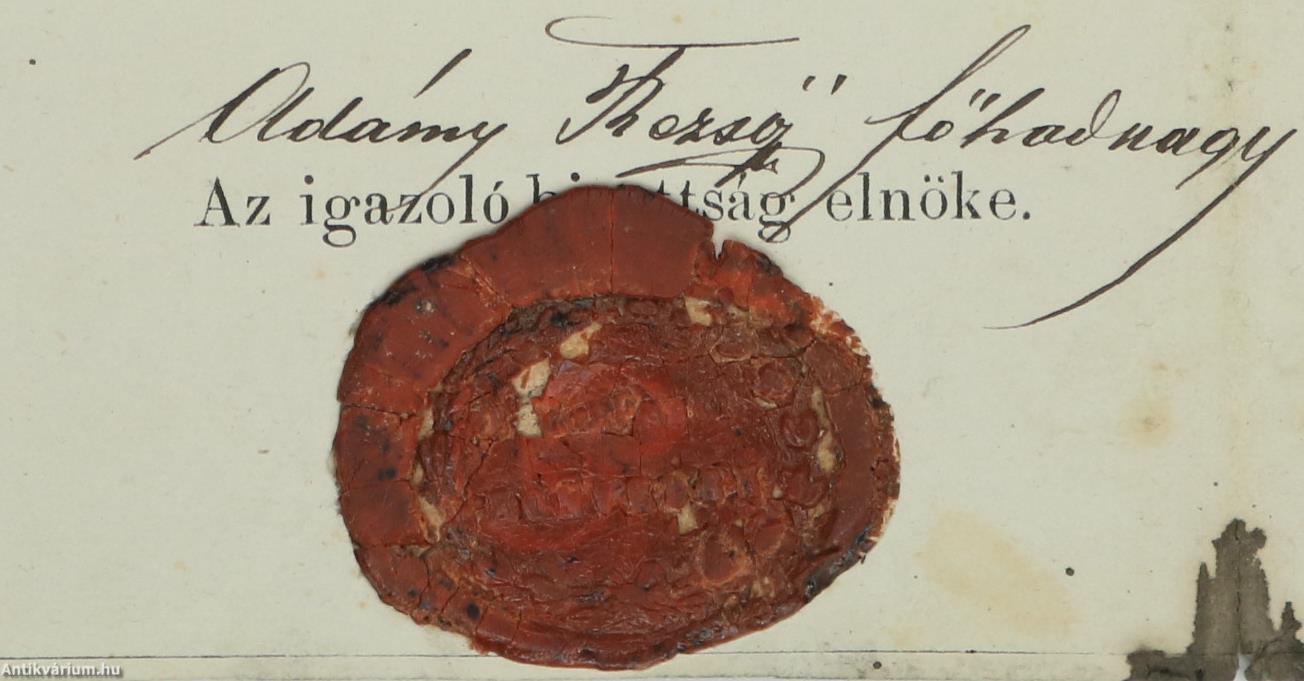 Aldámy Rezső főhadnagy
Az igazoló bizottság elnöke.
Antikvárium.hu